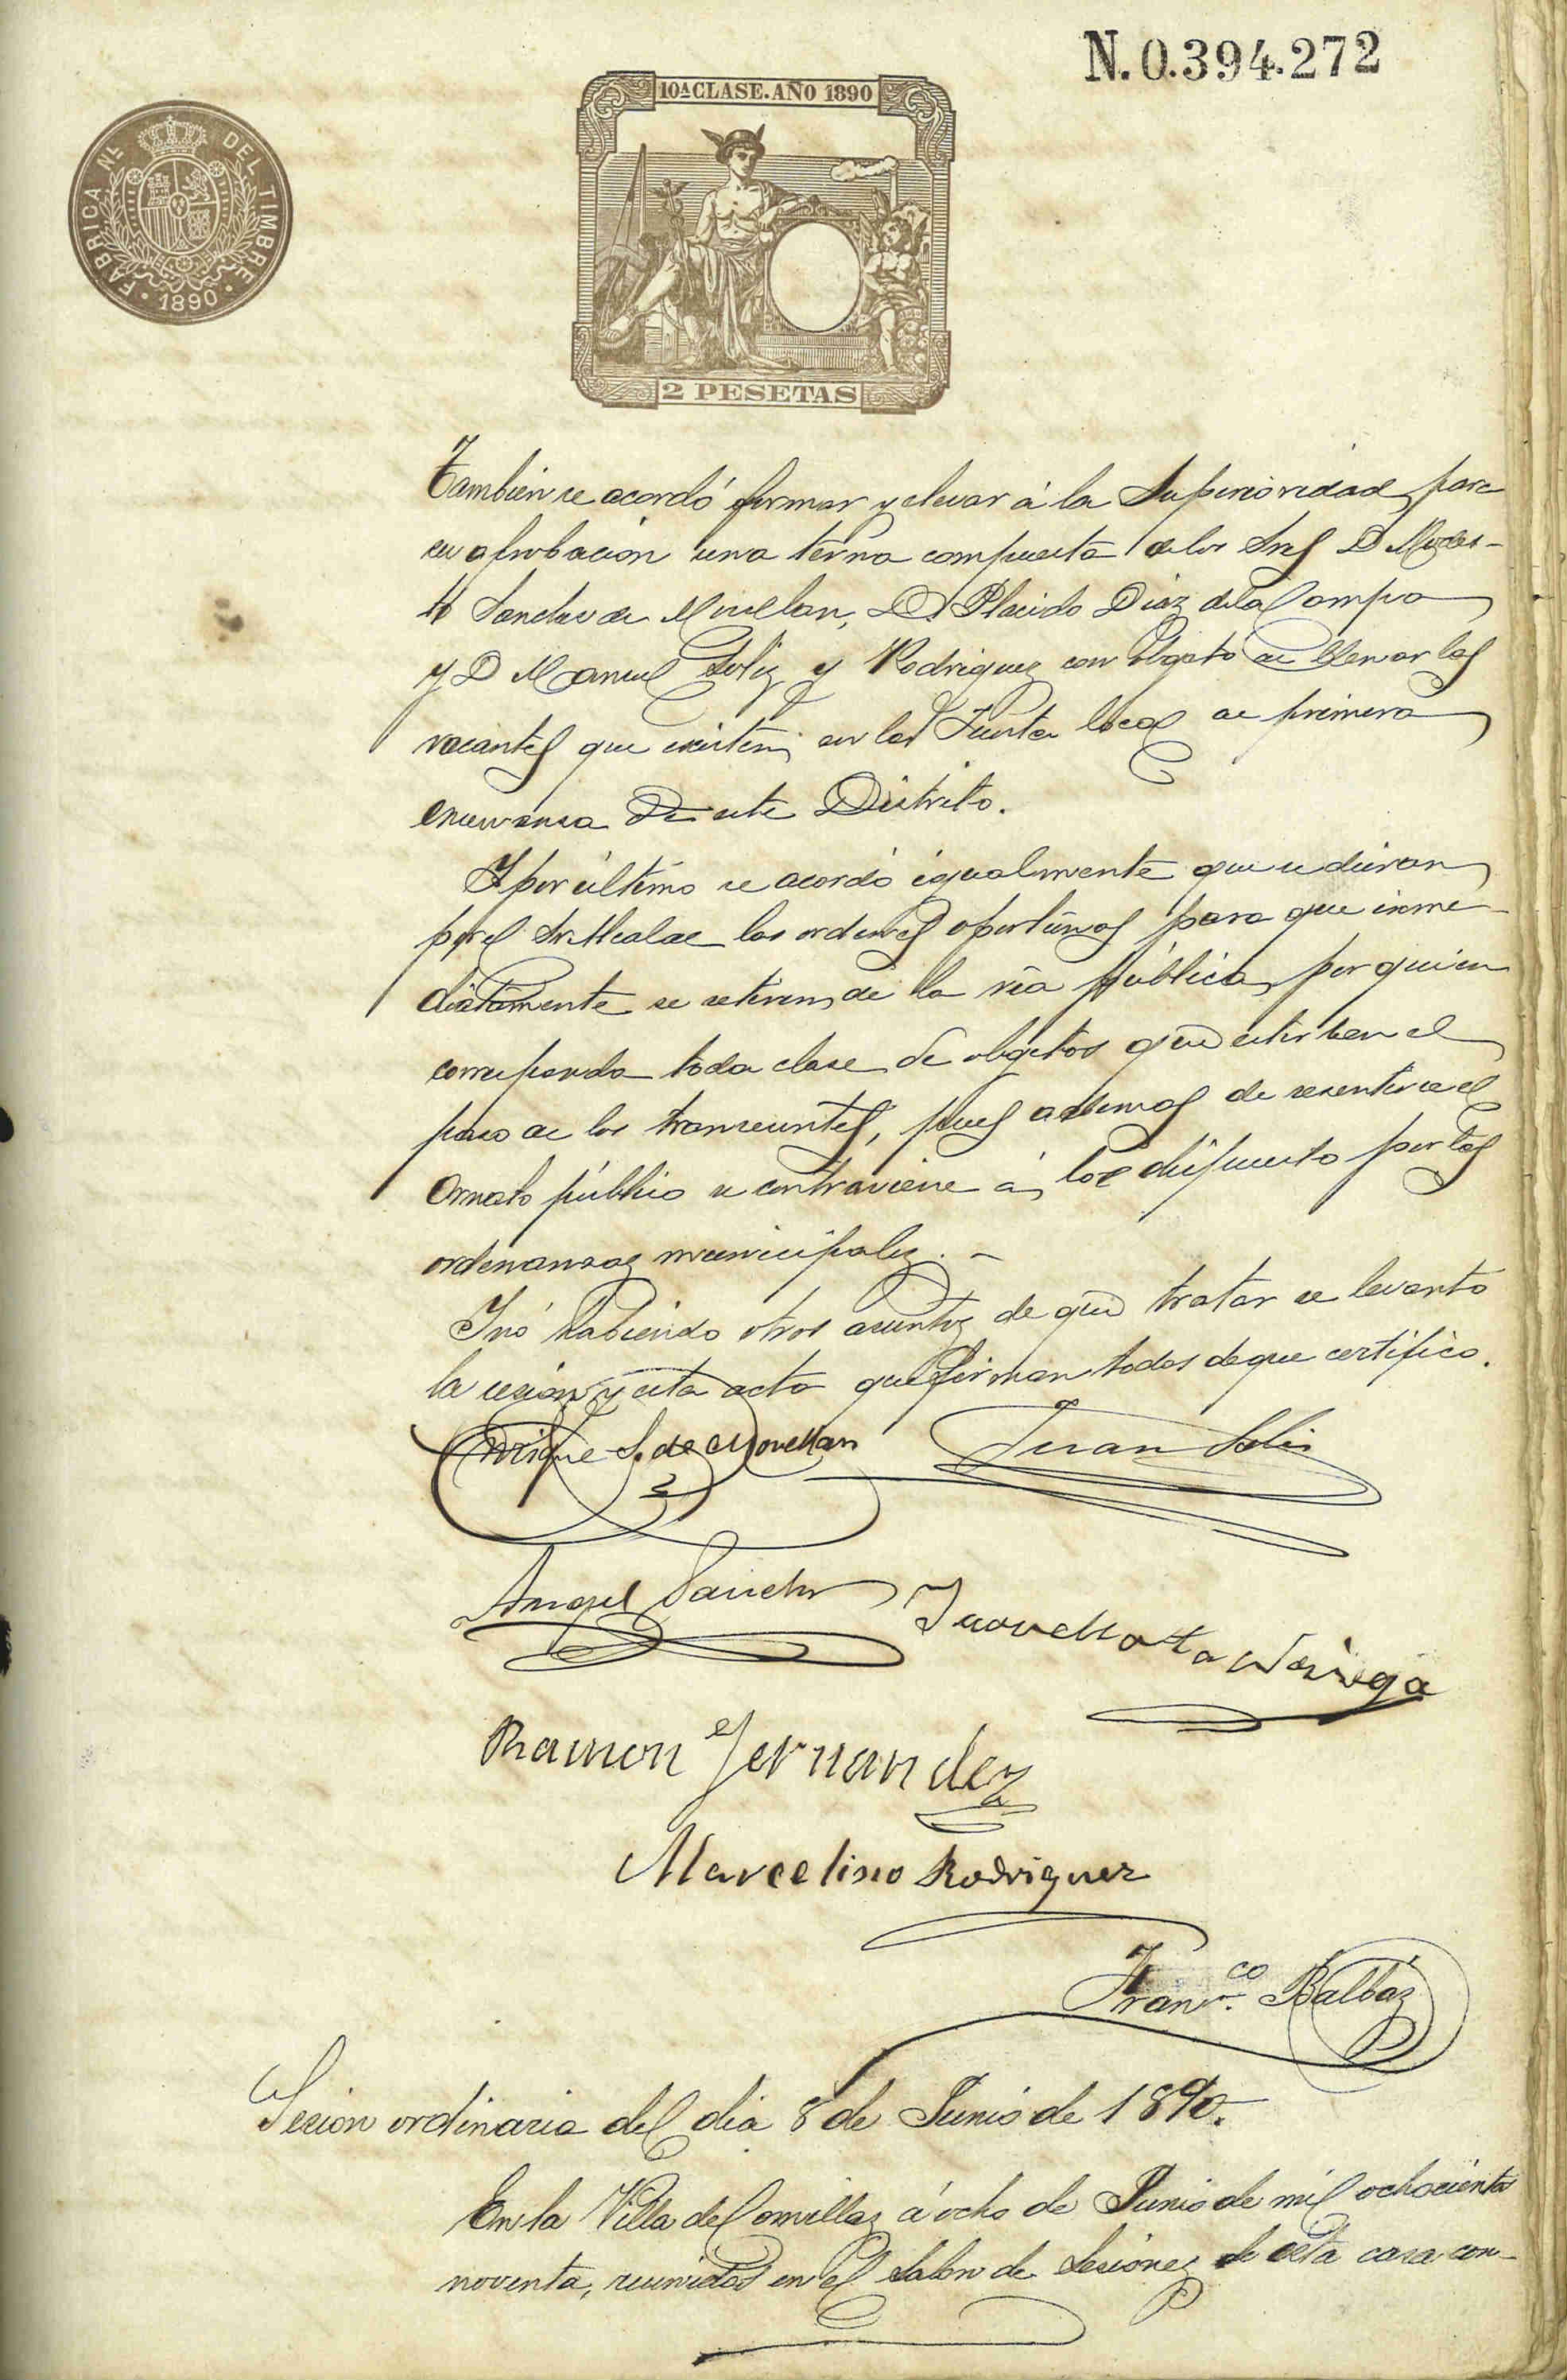 N. 0.394.272
10ª CLASE. AÑO 1890
FABRICA NL. DEL TIMBRE
· 1890 ·
2 PESETAS
Tambien se acordó formar y elevar á la Superioridad para
su aprobacion una terna compuesta de los Sres D Modes-
to Sanchez de Movellan, D. Placido Diaz de la Campa
y D Manuel Soliz y Rodriguez con obgeto de llenar las
vacantes que existen en la Junta local de primera
enseñansa de este Distrito.
Y por último se acordó igualmente que se dieran
por el Sr Alcalde las ordenes oportunas para que inme-
diatamente se retiren de la via pública por quien
corresponda toda clase de obgetos que estorben el
paso de los transeuntes, pues ademas de resentirse el
ornato público se contraviene á lo dispuesto por las
ordenansas municipales. -
Y nó habiendo otros asuntos de que tratar se levanto
la sesion y esta acta que firman todos de que certifico.
Enrique S. de Movellan Juan Solis
Angel Sanchez Juan de la Noriega
Ramon Fernandez
Marcelino Rodriguez
Franco. Balbás
Sesion ordinaria del dia 8 de Junio de 1890.
En la Villa de Comillas á ocho de Junio de mil ochocientos
noventa, reunidos en el Salon de Sesiones de esta casa con-